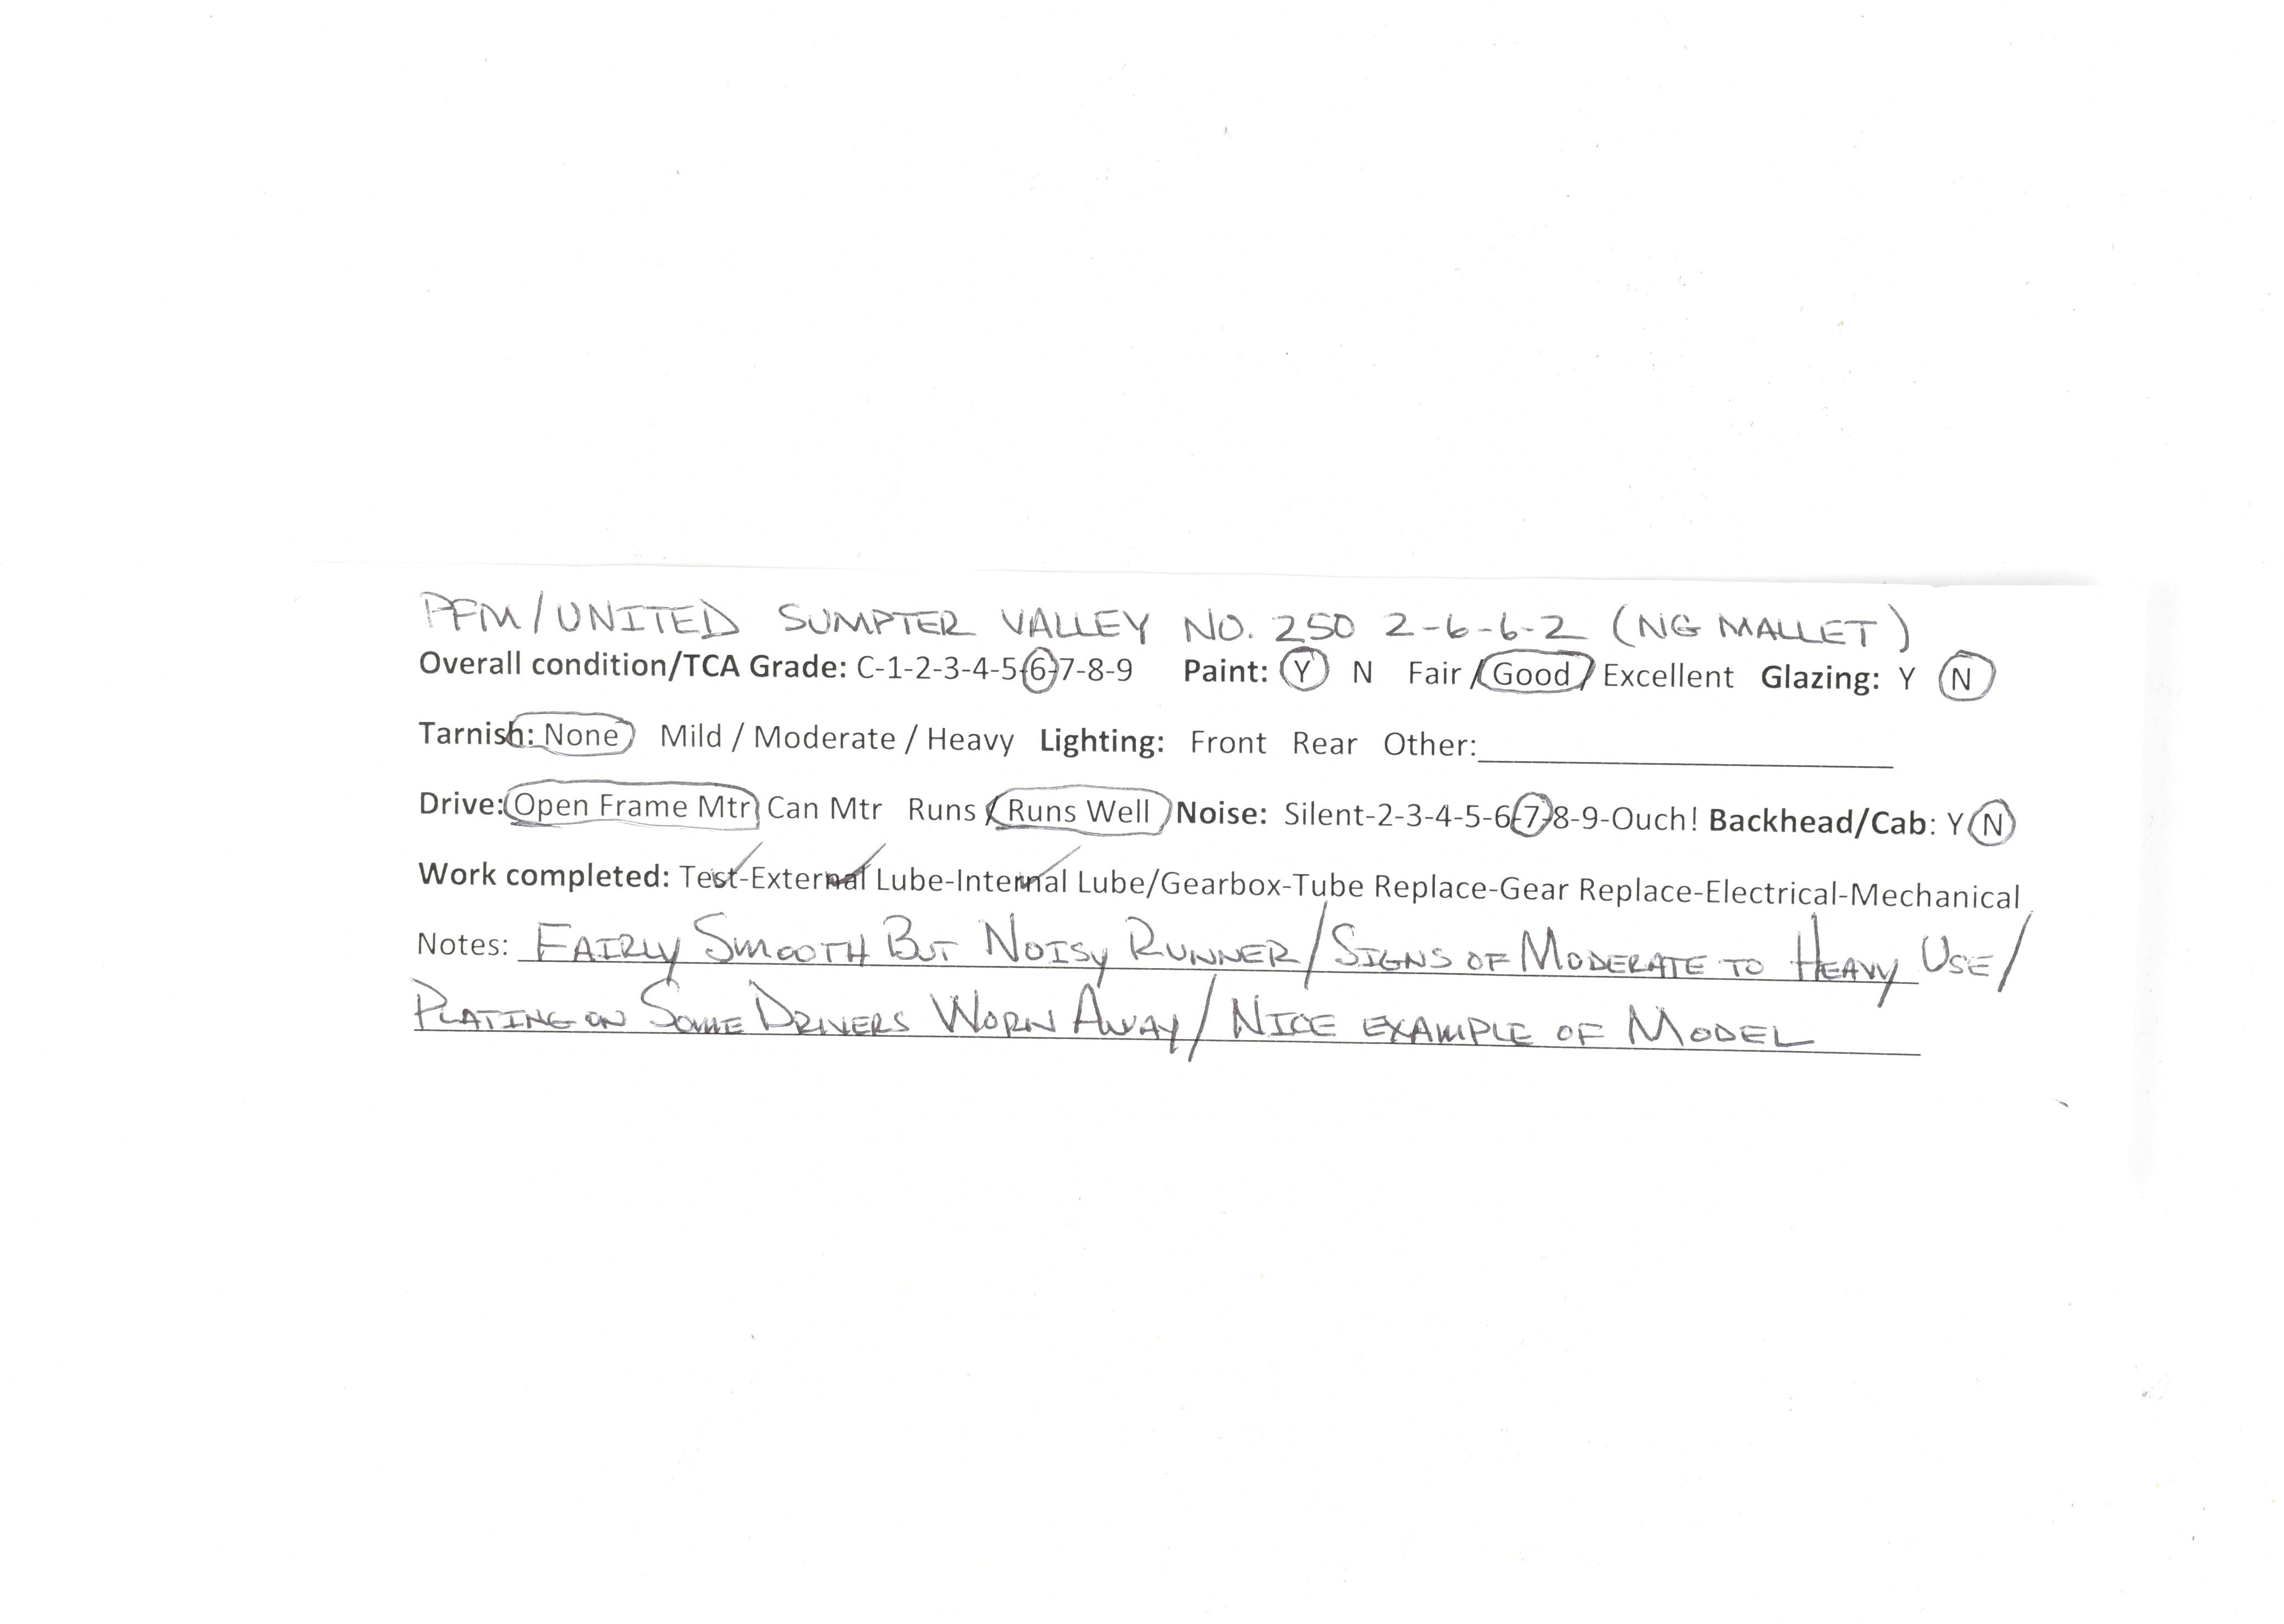 PFM/UNITED SUMPTER VALLEY NO. 250 2-6-6-2 (NG MALLET)
Overall condition/TCA Grade: C-1-2-3-4-5-6-7-8-9 Paint: Y N Fair / Good / Excellent Glazing: Y N
Tarnish: None Mild / Moderate / Heavy Lighting: Front Rear Other:
Drive: Open Frame Mtr Can Mtr Runs / Runs Well Noise: Silent-2-3-4-5-6-7-8-9-Ouch! Backhead/Cab: Y N
Work completed: Test-External Lube-Internal Lube/Gearbox-Tube Replace-Gear Replace-Electrical-Mechanical
Notes: FAIRLY SMOOTH BUT NOISY RUNNER/SIGNS OF MODERATE TO HEAVY USE/
PLATING ON SOME DRIVERS WORN AWAY/NICE EXAMPLE OF MODEL